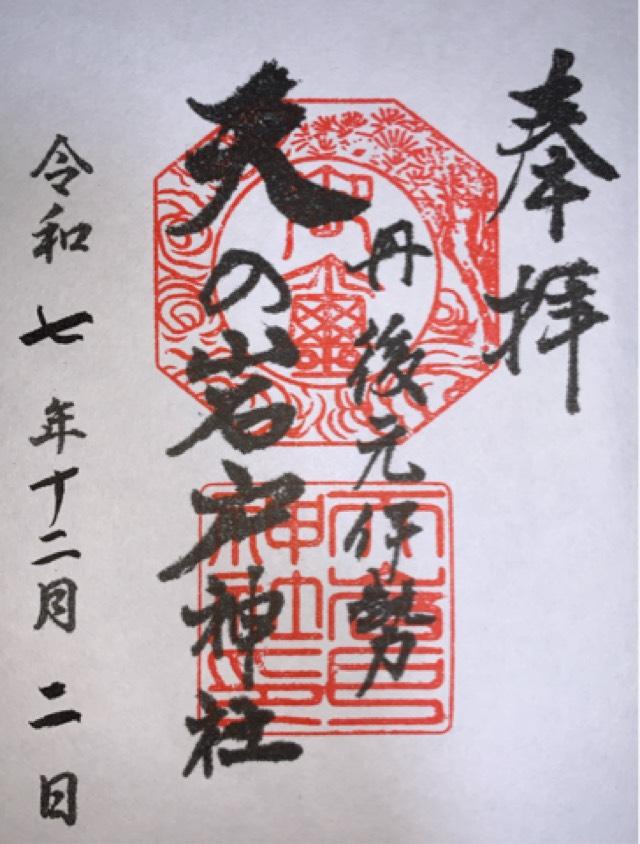 奉拝
丹後元伊勢
天の岩戸神社
令和七年十二月二日